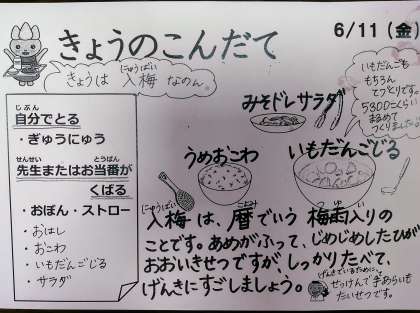 きょうのこんだて
6/11(金)
きょうは入梅なのん。
にゅうばい
いもだんごも
もちろん
てづくりです。
5300こくらい
まるめて
つくりました
じぶん
自分でとる
・ぎゅうにゅう
せんせい とうばん
先生またはお当番が
くばる
・おぼん・ストロー
・おはし
・おこわ
・いもだんごじる
・サラダ
みそドレサラダ
うめおこわ
いもだんごじる
にゅうばい こよみ つゆい
入梅は、暦でいう梅雨入りの
ことです。あめがふって、じめじめしたひが
おおいきせつですが、しっかりたべて、
げんきにすごしましょう。
げんきでいるために、
せっけんで手あらいも
たいせつです。